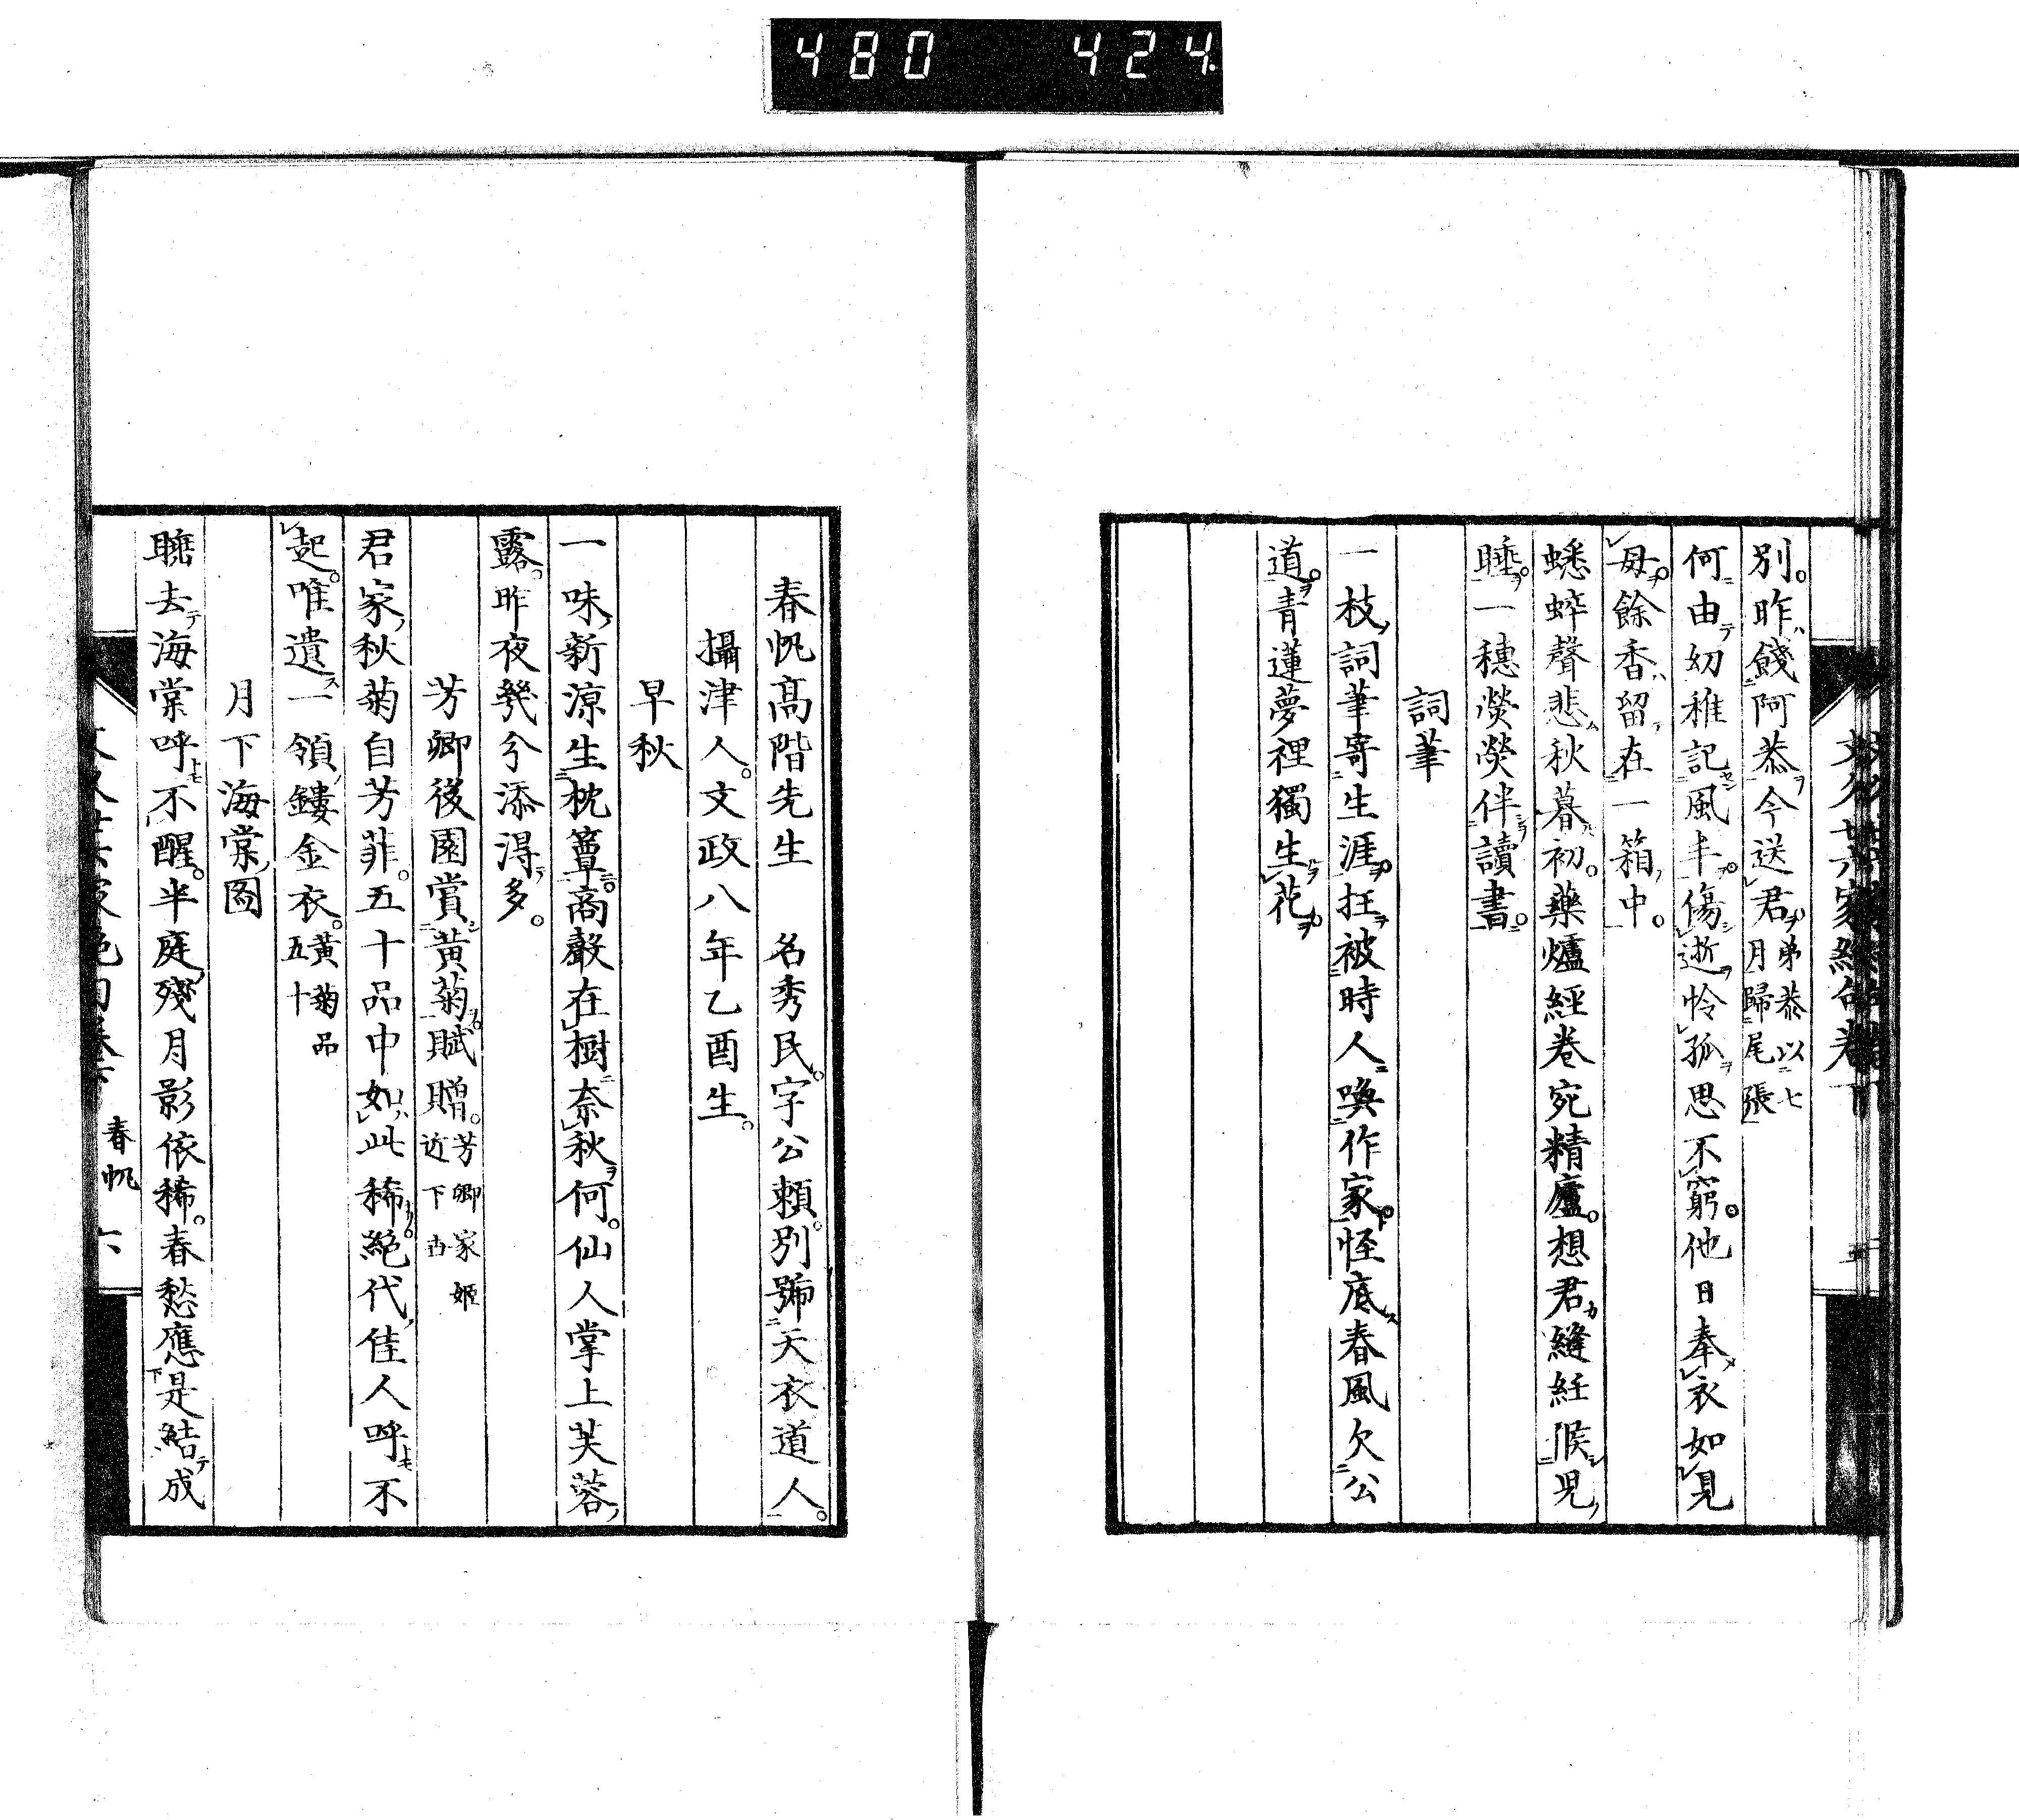 480 424
別。昨餞阿恭今送君弟恭以七月歸尾張
何由幼稚記風丰。傷逝怜孤思不窮。他日奉衣如見
母。餘香留在一箱中。
蟋蟀聲悲秋暮初。藥爐經卷宛精廬。想君縫紝候兒
睡。一穗熒熒伴讀書。
詞筆
一枝詞筆寄生涯。抂被時人喚作家。怪底春風欠公
道。青蓮夢裡獨生花
春帆高階先生 名秀民。字公賴。別號天衣道人。
攝津人。文政八年乙酉生。
早秋
一味新凉生枕簟。商聲在樹奈秋何。仙人掌上芙蓉
露。昨夜幾分添得多。
芳卿後園賞黃菊賦贈。芳卿家姬近下世
君家秋菊自芳菲。五十品中如此稀。絕代佳人呼不
起。唯遺一領鏤金衣。黃菊品五十
月下海棠圖
聽去海棠呼不醒。半庭殘月影依稀。春愁應是結成
春帆 六